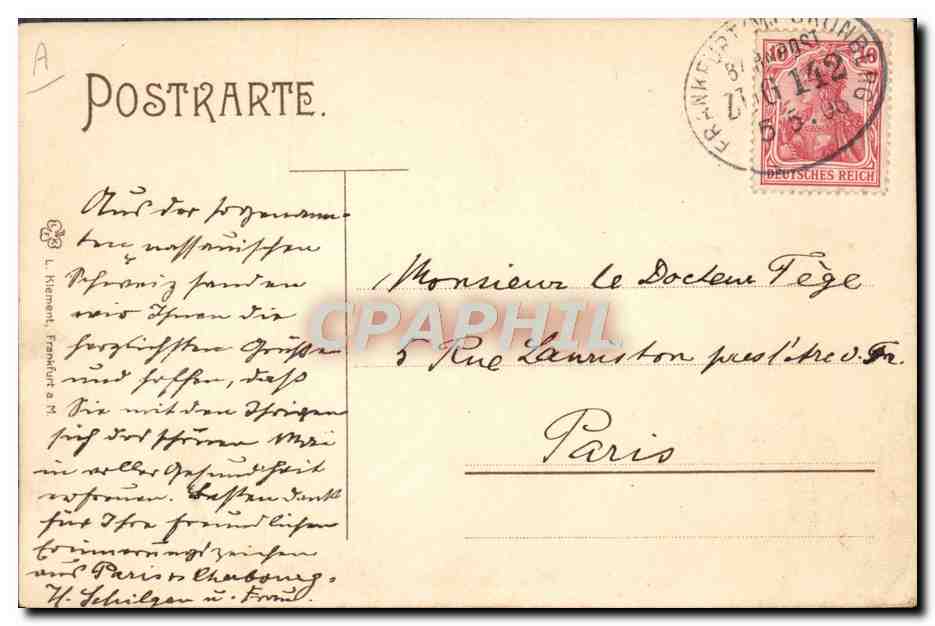 A
POSTKARTE.
FRANKFURT (M) CRONBERG
BAHNPOST
ZUG 142
5.5.08
10
DEUTSCHES REICH
Aus der sogenann-
ten nassauischen
Schweiz senden
wir Ihnen die
herzlichsten Grüße
und hoffen, daß
Sie mit den Ihrigen
sich des schönen Mai
in voller Gesundheit
erfreuen. Besten Dank
für Ihre freundlichen
Erinnerungszeichen
aus Paris Cherbourg.
H. Schilgen u. Frau.
L. Klement, Frankfurt a. M.
Monsieur le Docteur Tège
5 Rue Lauriston pres l'Arc d. Tr.
Paris
CPAPHIL